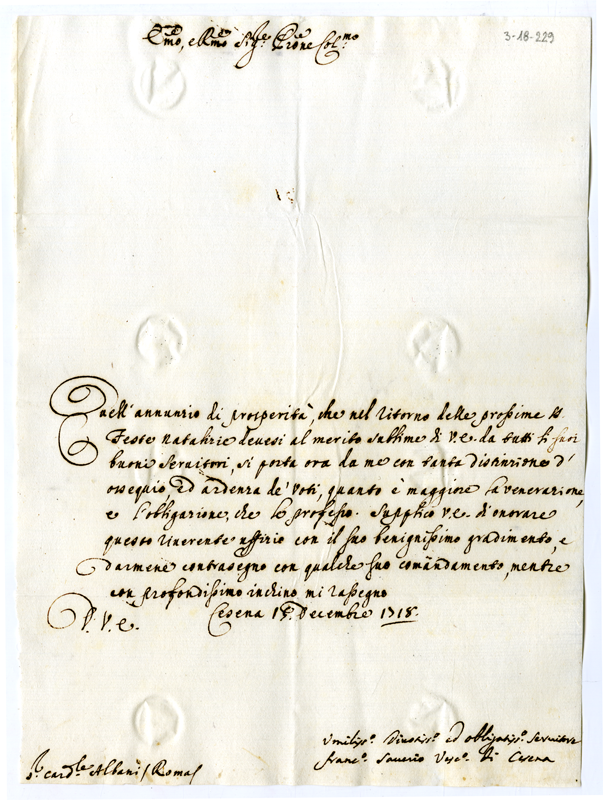 3-18-229
Emo, e Rmo Sig.re Prone Col.mo
Quell' annunzio di prosperità, che nel ritorno delle prossime SS.
Feste natalizie devesi al merito sublime di V.E. da tutti li suoi
buoni Servitori, si porta ora da me con tanta distinzione d'
ossequio, ed ardenza de' voti, quanto è maggiore la venerazione,
e l'obligazione, che le professo. Supplico V.E. d'onorare
questo riverente uffizio con il suo benignissimo gradimento, e
darmene contrasegno con qualche suo comandamento, mentre
con profondissimo inchino mi rassegno
D. V. E. Cesena Decembre 1718.
Umiliss.o Divotiss.o ed obligatiss.o Servitore
Franc.o Saverio Vesc.o di Cesena
S.r Card.le Albani / Roma /